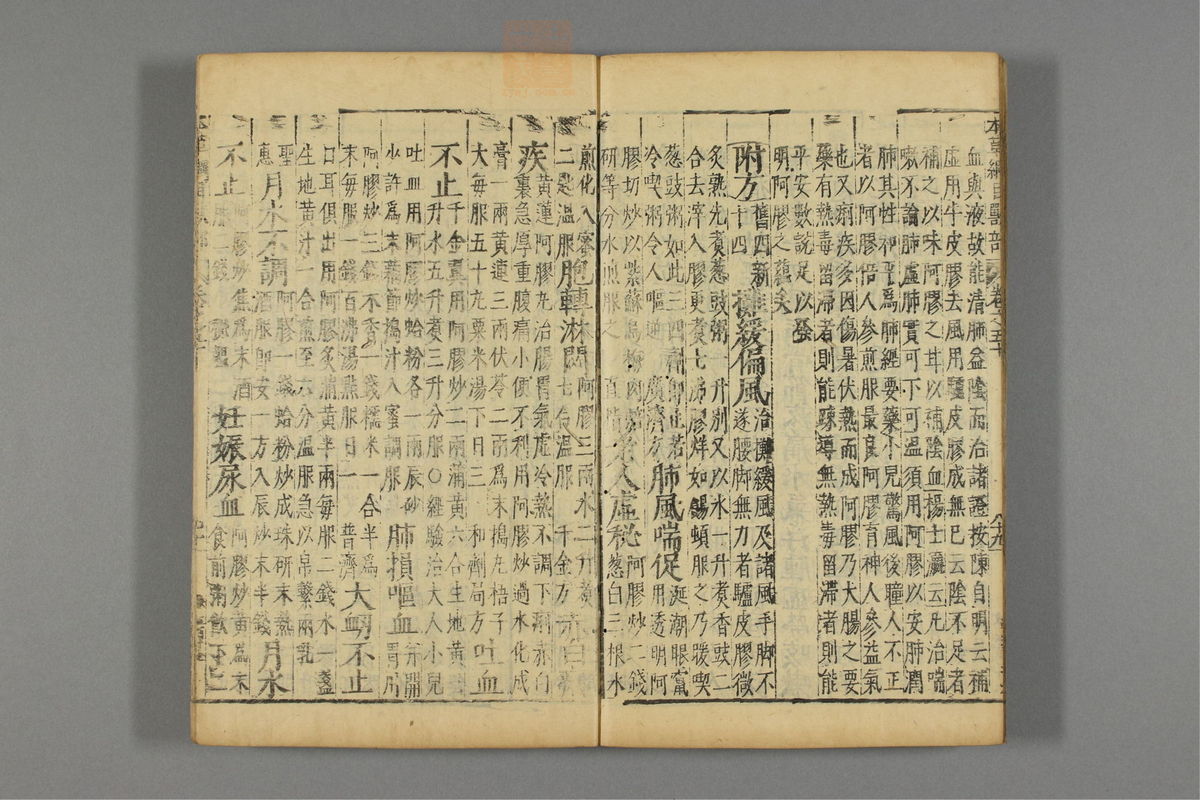 本草綱目獸部 卷之五十 全九
血與液故能清肺益陰而治諸證按陳自明云補
虛用牛皮膠去風用驢皮膠成無已云陰不足者
補之以味阿膠之甘以補陰血楊士瀛云凡治喘
嗽不論肺虛肺實可下可溫須用阿膠以安肺潤
肺其性和平爲肺經要藥小兒驚風後瞳人不正
者以阿膠倍人參煎服最良阿膠育神人參益氣
也又痢疾多因傷暑伏熱而成阿膠乃大腸之要
藥有熱毒留滯者則能疏導無熱毒留滯者則能
平安數說足以發
明阿膠之蘊矣
附方 舊四新十四 攤緩偏風 治攤緩風及諸風手脚不遂腰脚無力者驢皮膠微
炙熟先煮葱豉粥一升別又以水一升煮香豉二
合去滓入膠更煮七沸膠烊如餳頓服之乃暖喫
葱豉粥如此三四劑即止若
冷喫粥令人嘔逆 廣濟方 肺風喘促 涎潮眼竄用透明阿
膠切炒以紫蘇烏梅肉 人虛秘 阿膠炒二錢
研等分水煎服之 直 葱白三根水
煎化入蜜
二匙溫服 胞轉淋閟 阿膠三兩水二升煮七合溫服 千金方 赤白
疾 黃連阿膠丸治腸胃氣虛冷熱不調下痢赤白
裏急厚重腹痛小便不利用阿膠炒過水化成
膏一兩黃連三兩茯苓二兩爲末搗丸梧子
大每服五十丸粟米湯下日三 和劑局方 吐血
不止 千金翼用阿膠炒二兩蒲黃六合生地黃三
升水五升煮三升分服○經驗治大人小兒
吐血用阿膠炒蛤粉各一兩辰砂
少許爲末藕節搗汁入蜜調服 肺損嘔血 并開胃用
阿膠炒三錢木香一錢糯米一合半爲
末每服一錢百沸湯點服日一 普濟 大衄不止
口耳俱出用阿膠炙蒲黃半兩每服二錢水一盞
生地黃汁一合煎至六分溫服急以帛繫兩乳
聖惠 月水不調 阿膠一錢蛤粉炒成珠研末熱酒服即安一方入辰砂末半錢 月水
不止 阿膠炒焦爲末酒 錢 妊娠尿血 阿膠炒黃爲末食前粥飲下